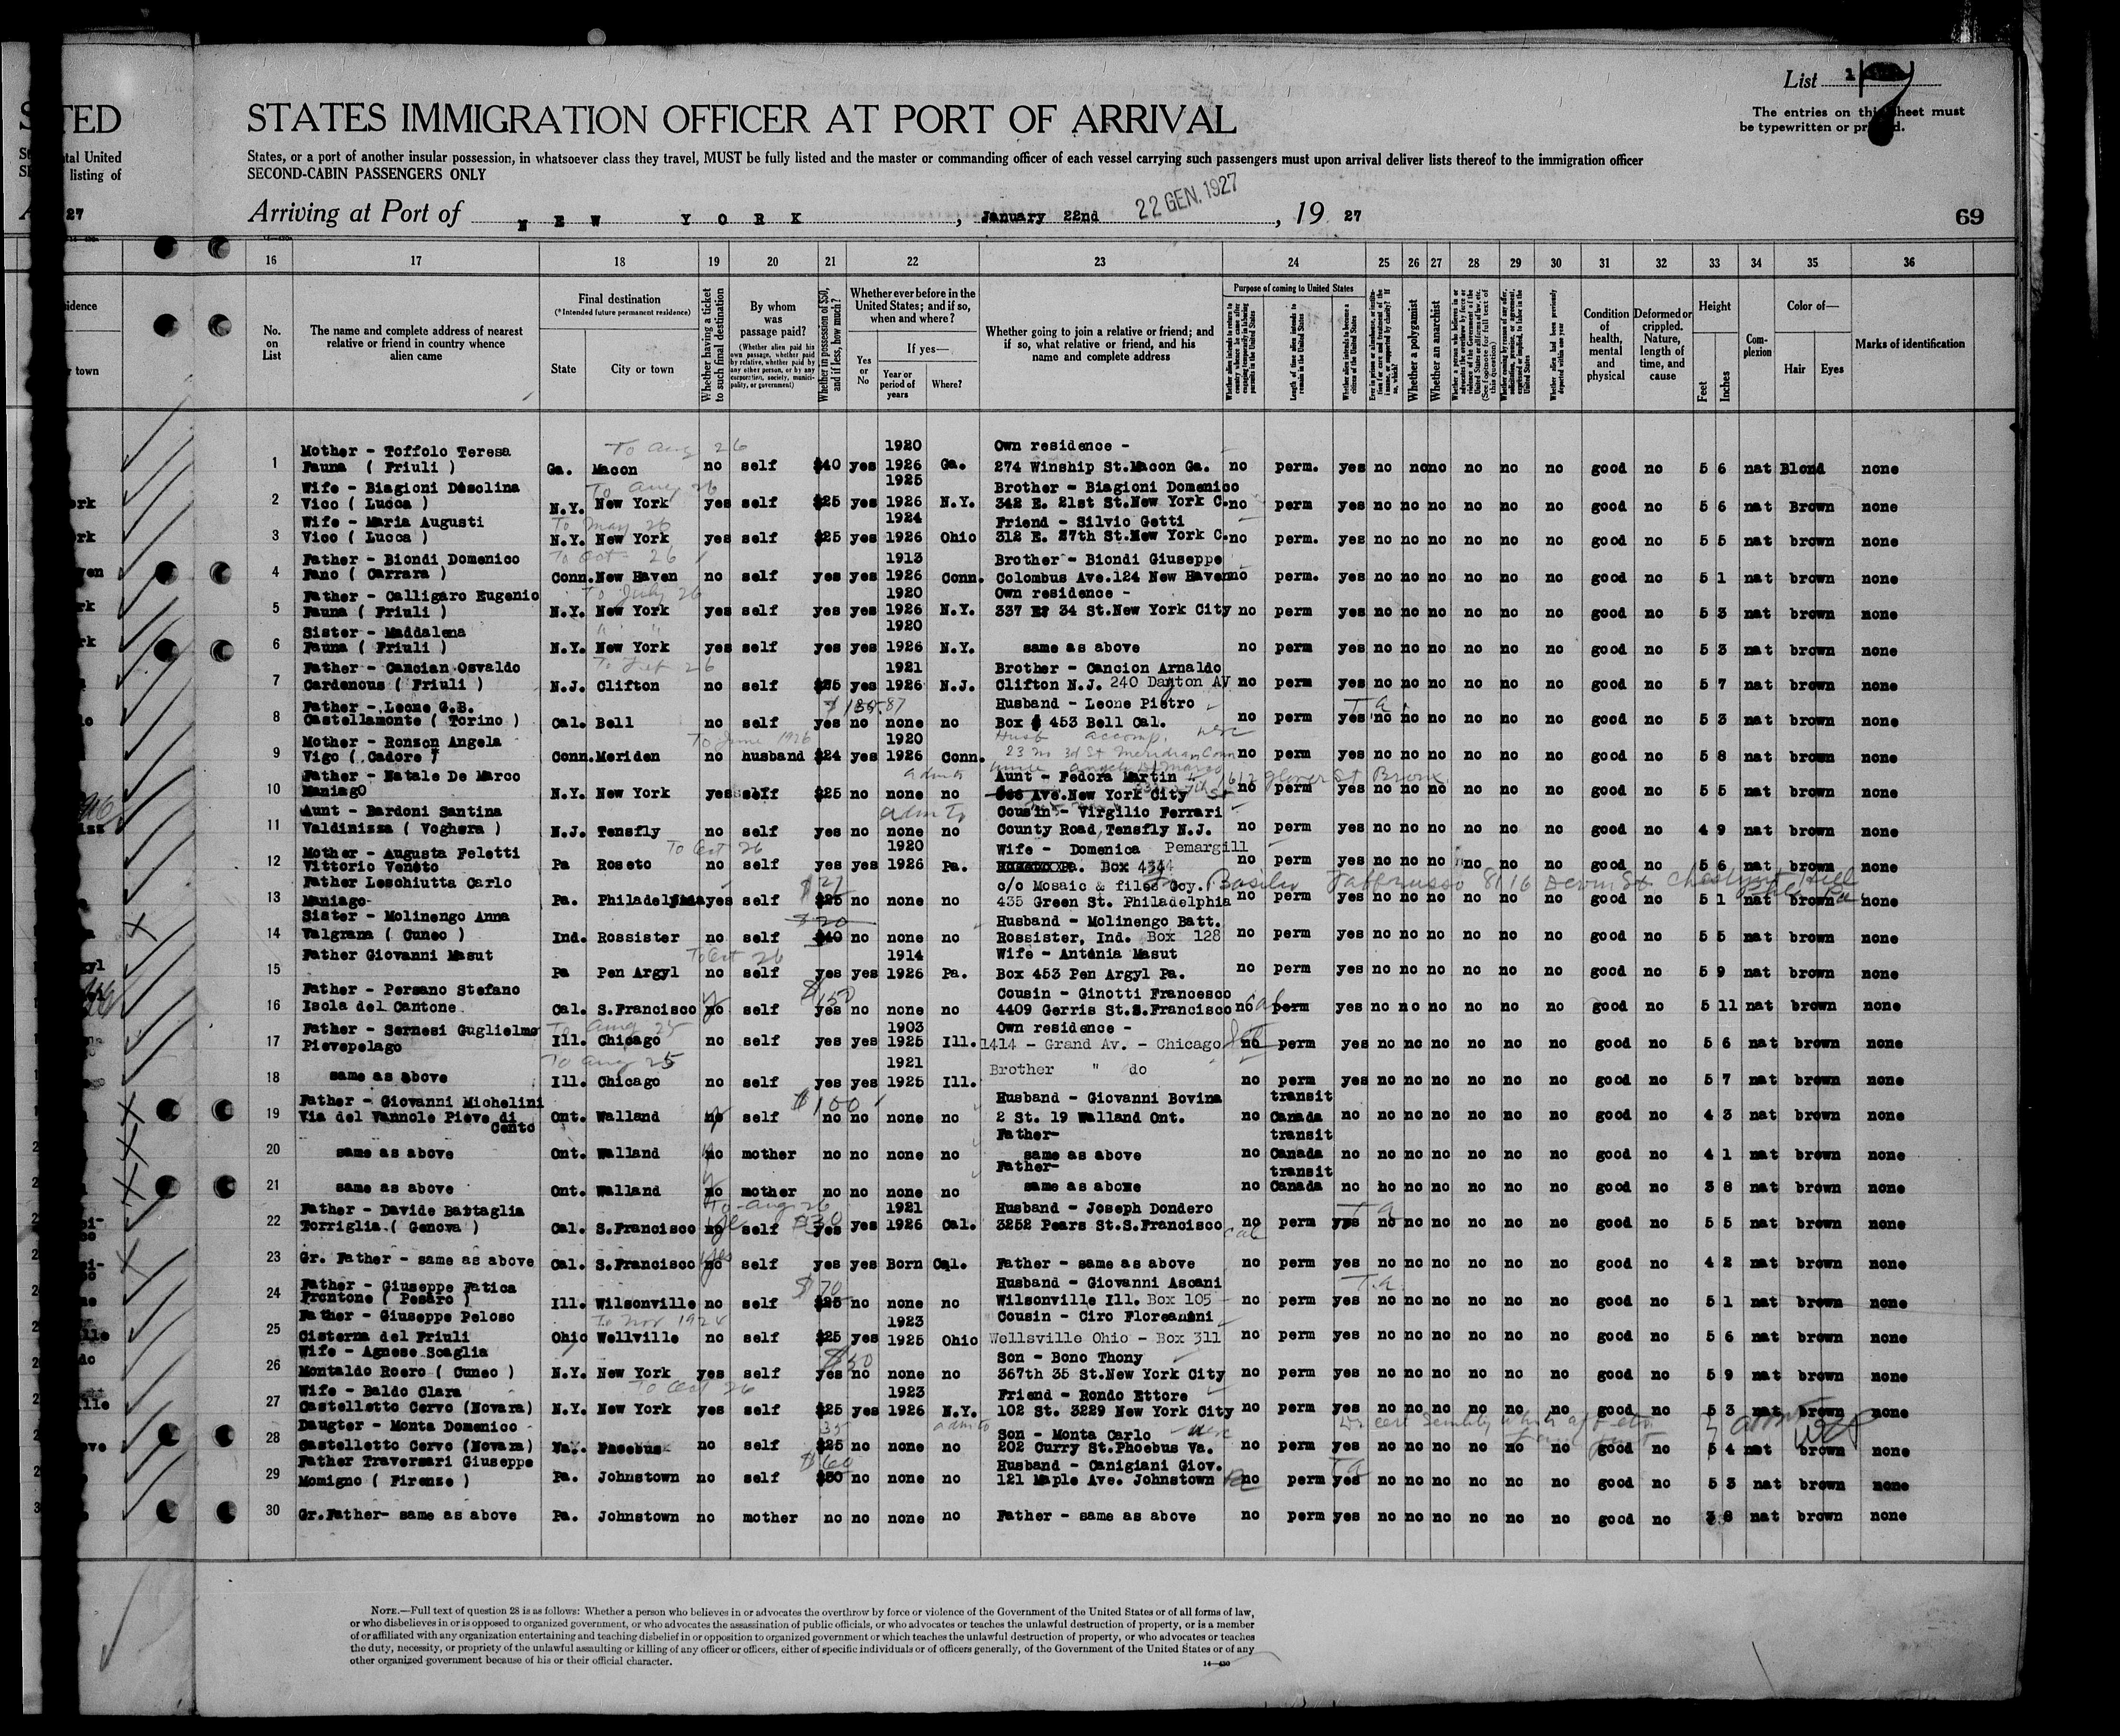 List 1
The entries on this sheet must
be typewritten or printed.
STATES IMMIGRATION OFFICER AT PORT OF ARRIVAL
States, or a port of another insular possession, in whatsoever class they travel, MUST be fully listed and the master or commanding officer of each vessel carrying such passengers must upon arrival deliver lists thereof to the immigration officer
SECOND-CABIN PASSENGERS ONLY
Arriving at Port of NEW YORK, January 22nd 22 GEN. 1927, 19 27
69
16 17 18 19 20 21 22 23 24 25 26 27 28 29 30 31 32 33 34 35 36
No. on List
The name and complete address of nearest relative or friend in country whence alien came
Final destination
(* Intended future permanent residence)
State
City or town
Whether having a ticket to such final destination
By whom was passage paid?
(Whether alien paid his own passage, whether paid by relative, whether paid by any other person, or by any corporation, society, municipality, or government)
Whether in possession of $50, and if less, how much?
Whether ever before in the United States; and if so, when and where?
Yes or No
If yes—
Year or period of years
Where?
Whether going to join a relative or friend; and if so, what relative or friend, and his name and complete address
Purpose of coming to United States
Whether a polygamist
Whether an anarchist
Condition of health, mental and physical
Deformed or crippled. Nature, length of time, and cause
Height
Feet
Inches
Complexion
Color of—
Hair
Eyes
Marks of identification
1 Mother - Toffolo Teresa Fauna ( Friuli ) Ga. Macon no self $40 yes 1920 1926 Ga. Own residence - 274 Winship St.Macon Ga. no perm. yes no no no no no no good no 5 6 nat Blond none
To Aug 26
2 Wife - Biagioni Désolina Vico ( Lucca ) N.Y. New York yes self $25 yes 1925 1926 N.Y. Brother - Biagioni Domenico 342 E. 21st St.New York C. no perm yes no no no no no no good no 5 6 nat Brown none
To Aug 26
3 Wife - Maria Augusti Vico ( Lucca ) N.Y. New York yes self $25 yes 1924 1926 Ohio Friend - Silvio Getti 312 E. 27th St.New York C. no perm. yes no no no no no no good no 5 5 nat brown none
To May 26
4 Father - Biondi Domenico Fano ( Carrara ) Conn. New Haven no self yes yes 1913 1926 Conn. Brother - Biondi Giuseppe Colombus Ave.124 New Haven no perm. yes no no no no no no good no 5 1 nat brown none
To Oct 26
5 Father - Calligaro Eugenio Fauna ( Friuli ) N.Y. New York yes self yes yes 1920 1926 N.Y. Own residence - 337 E? 34 St.New York City no perm yes no no no no no no good no 5 3 nat brown none
To July 26
6 Sister - Maddalena Fauna ( Friuli ) N.Y. New York yes self yes yes 1920 1926 N.Y. same as above no perm yes no no no no no no good no 5 3 nat brown none
7 Father - Cancian Osvaldo Cardenous ( Friuli ) N.J. Clifton no self $75 yes 1921 1926 N.J. Brother - Cancion Arnaldo Clifton N.J. 240 Dayton AV no perm yes no no no no no no good no 5 7 nat brown none
8 Father - Leone G.B. Castellamonte ( Torino ) Cal. Bell no self yes no none no Husband - Leone Pietro Box 453 Bell Cal. no perm yes no no no no no no good no 5 3 nat brown none
9 Mother - Ronzon Angela Vigo ( Cadore ) Conn. Meriden no husband $24 yes 1920 1926 Conn. no perm yes no no no no no no good no 5 8 nat brown none
To June 1926
Husb accomp. 23 No 3d St Meridian Conn
10 Father - Natale De Marco Maniago N.Y. New York yes self $25 no none no Aunt - Fedora Martin Ave.New York City no perm yes no no no no no no good no 5 5 nat brown none
1612 Glover St Bronx
11 Aunt - Bardoni Santina Valdinizza ( Voghera ) N.J. Tensfly no self yes no none no Cousin - Virgilio Ferrari County Road, Tensfly N.J. no perm yes no no no no no no good no 4 9 nat brown none
12 Mother - Augusta Feletti Vittorio Veneto Pa Roseto no self yes yes 1920 1926 Pa. Wife - Domenica Pemargill Box 434 no perm yes no no no no no no good no 5 6 nat brown none
To Oct 26
13 Father Leschiutta Carlo Maniago Pa. Philadelphia yes self $25 no none no c/o Mosaic & files Coy. 435 Green St. Philadelphia no perm yes no no no no no no good no 5 1 nat brown none
$27
14 Sister - Molinengo Anna Valgrana ( Cuneo ) Ind. Rossister no self $40 no none no Husband - Molinengo Batt. Rossister, Ind. Box 128 no perm yes no no no no no no good no 5 5 nat brown none
15 Father Giovanni Masut Pa Pen Argyl no self yes yes 1914 1926 Pa. Wife - Antonia Masut Box 453 Pen Argyl Pa. no perm yes no no no no no no good no 5 9 nat brown none
To Oct 26
16 Father - Persano Stefano Isola del Cantone Cal. S.Francisco no self yes no none no Cousin - Ginotti Francesco 4409 Gerris St.S.Francisco no perm yes no no no no no no good no 5 11 nat brown none
$150
17 Father - Sernesi Guglielmo Pievepelago Ill. Chicago no self yes yes 1903 1925 Ill. Own residence - 1414 - Grand Av. - Chicago no perm yes no no no no no no good no 5 6 nat brown none
To Aug 25
18 same as above Ill. Chicago no self yes yes 1921 1925 Ill. Brother " do no perm yes no no no no no no good no 5 7 nat brown none
To Aug 25
19 Father - Giovanni Michelini Via del Vannole Pieve di Cento Ont. Walland no self no no none no Husband - Giovanni Bovina 2 St. 19 Walland Ont. no transit Canada no no no no no no no good no 4 3 nat brown none
$100
20 same as above Ont. Walland no mother no no none no Father- same as above no transit Canada no no no no no no no good no 4 1 nat brown none
21 same as above Ont. Walland no mother no no none no Father- same as above no transit Canada no no no no no no no good no 3 8 nat brown none
22 Father - Davide Battaglia Torriglia ( Genova ) Cal. S.Francisco no self yes yes 1921 1926 Cal. Husband - Joseph Dondero 3252 Pears St.S.Francisco no perm yes no no no no no no good no 5 5 nat brown none
To Aug 26
23 Gr. Father - same as above Cal. S.Francisco no self yes yes Born Cal. Father - same as above no perm yes no no no no no no good no 4 2 nat brown none
24 Father - Giuseppe Fatica Frontone ( Pesaro ) Ill. Wilsonville no self $25 no none no Husband - Giovanni Ascani Wilsonville Ill. Box 105 no perm yes no no no no no no good no 5 1 nat brown none
$70
25 Father - Giuseppe Peloso Cisterna del Friuli Ohio Wellville no self $25 yes 1923 1925 Ohio Cousin - Ciro Floreanini Wellsville Ohio - Box 311 no perm yes no no no no no no good no 5 6 nat brown none
To Nov 1924
26 Wife - Agnese Scaglia Montaldo Roero ( Cuneo ) N.Y. New York yes self yes no none no Son - Bono Thony 367th 35 St.New York City no perm yes no no no no no no good no 5 9 nat brown none
27 Wife - Baldo Clara Castelletto Cervo (Novara) N.Y. New York yes self $25 yes 1923 1926 N.Y. Friend - Rondo Ettore 102 St. 3229 New York City no perm yes no no no no no no good no 5 3 nat brown none
To Oct 26
28 Daugter - Monta Domenico Castelletto Cervo (Novara) Va. Phoebus no self $25 no none no Son - Monta Carlo 202 Curry St.Phoebus Va. no perm yes no no no no no no good no 5 4 nat brown none
29 Father Traversari Giuseppe Momigno ( Firenze ) Pa. Johnstown no self $50 no none no Husband - Canigiani Giov. 121 Maple Ave. Johnstown no perm yes no no no no no no good no 5 3 nat brown none
$60
30 Gr.Father- same as above Pa. Johnstown no mother no no none no Father - same as above no perm yes no no no no no no good no 3 8 nat brown none
NOTE.—Full text of question 28 is as follows: Whether a person who believes in or advocates the overthrow by force or violence of the Government of the United States or of all forms of law,
or who disbelieves in or is opposed to organized government, or who advocates the assassination of public officials, or who advocates or teaches the unlawful destruction of property, or is a member
of or affiliated with any organization entertaining and teaching disbelief in or opposition to organized government or which teaches the unlawful destruction of property, or who advocates or teaches
the duty, necessity, or propriety of the unlawful assaulting or killing of any officer or officers, either of specific individuals or of officers generally, of the Government of the United States or of any
other organized government because of his or their official character.
14—430